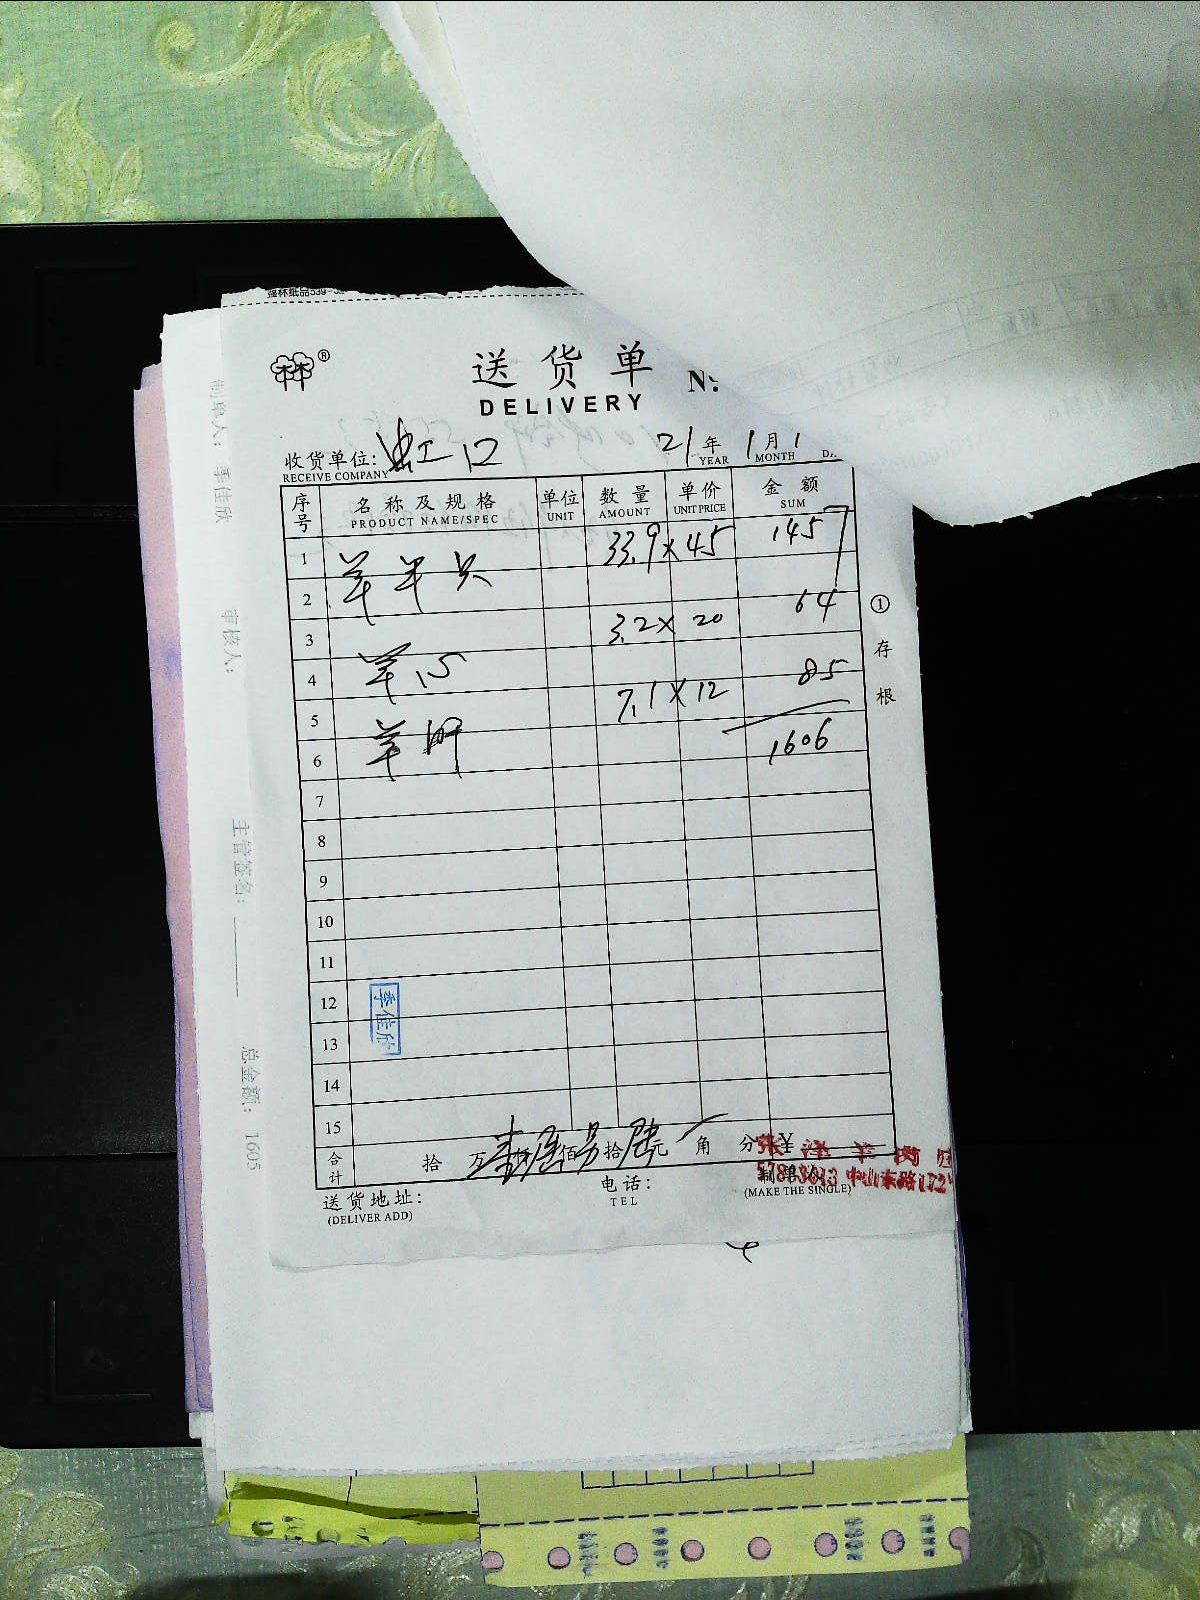 强林纸品539-3
送货单
DELIVERY
收货单位: 虹口 21年 1月1
RECEIVE COMPANY YEAR MONTH
序号 名称及规格 单位 数量 单价 金额
PRODUCT NAME/SPEC UNIT AMOUNT UNIT PRICE SUM
1 33.9×45 1457
2 羊半只
3 3.2×20 64
4 羊心
5 7.1×12 85
6 羊肝 1606
7
8
9
10
11
12
13
14
15
李佳欣
合计 拾 万 壹仟 佰 拾 陆元 角 分 ¥
张泽羊肉
送货地址: 电话:
(DELIVER ADD) TEL (MAKE THE SINGLE)
①存根
制单人: 李佳欣 审核人: 主管签名: 总金额: 1605